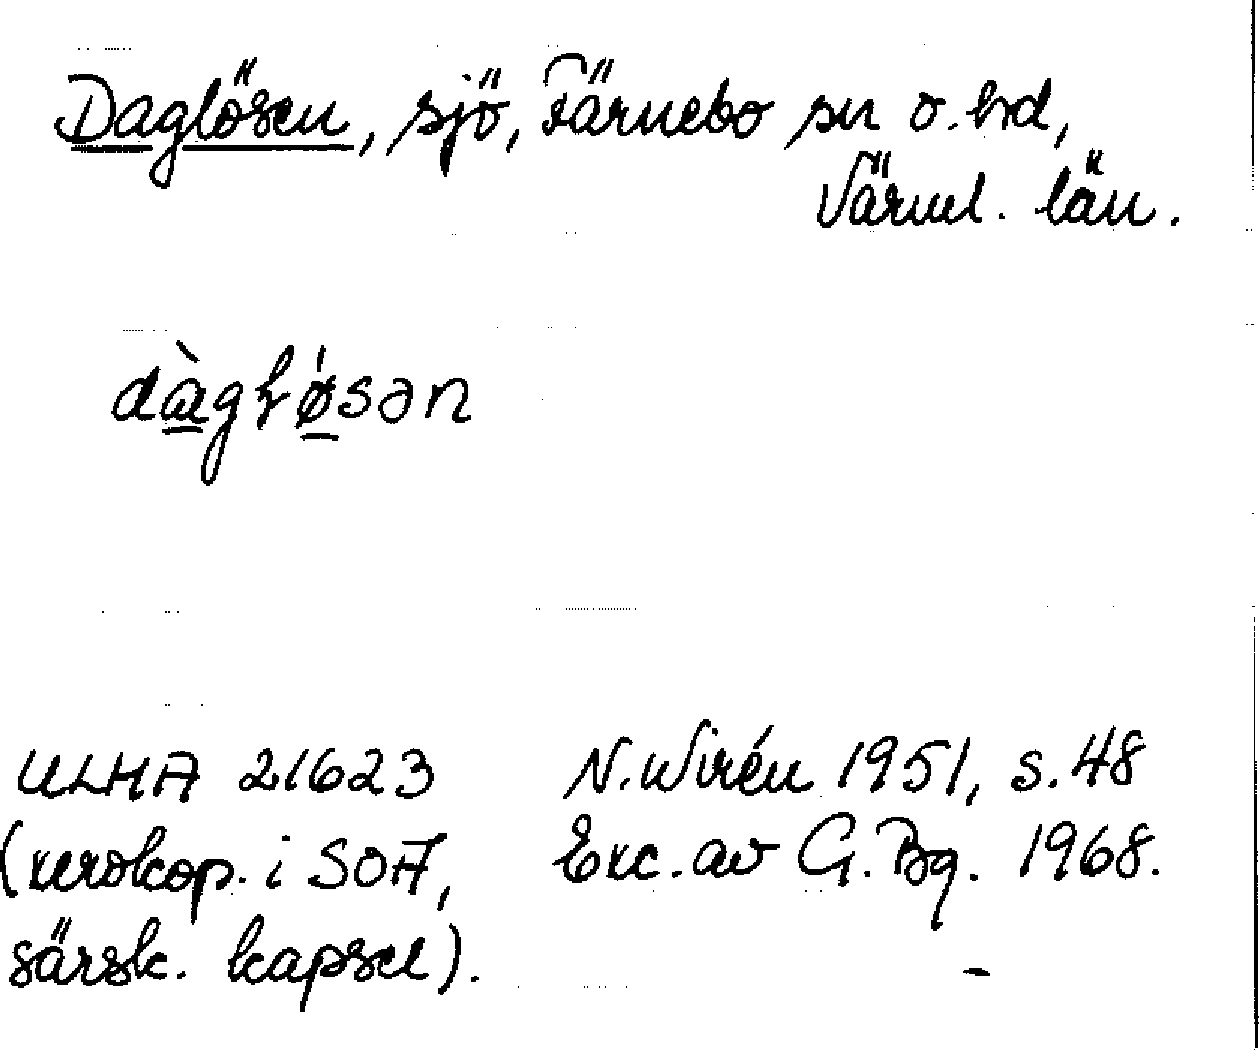 Daglösen, sjö, Färnebo sn o. hd,
Värml. län.
dàgløsən
ULMA 21623
(xerokop. i SOA,
särsk. kapsel).
N. Wirén 1951, s. 48
Exc. av G. Bg. 1968.